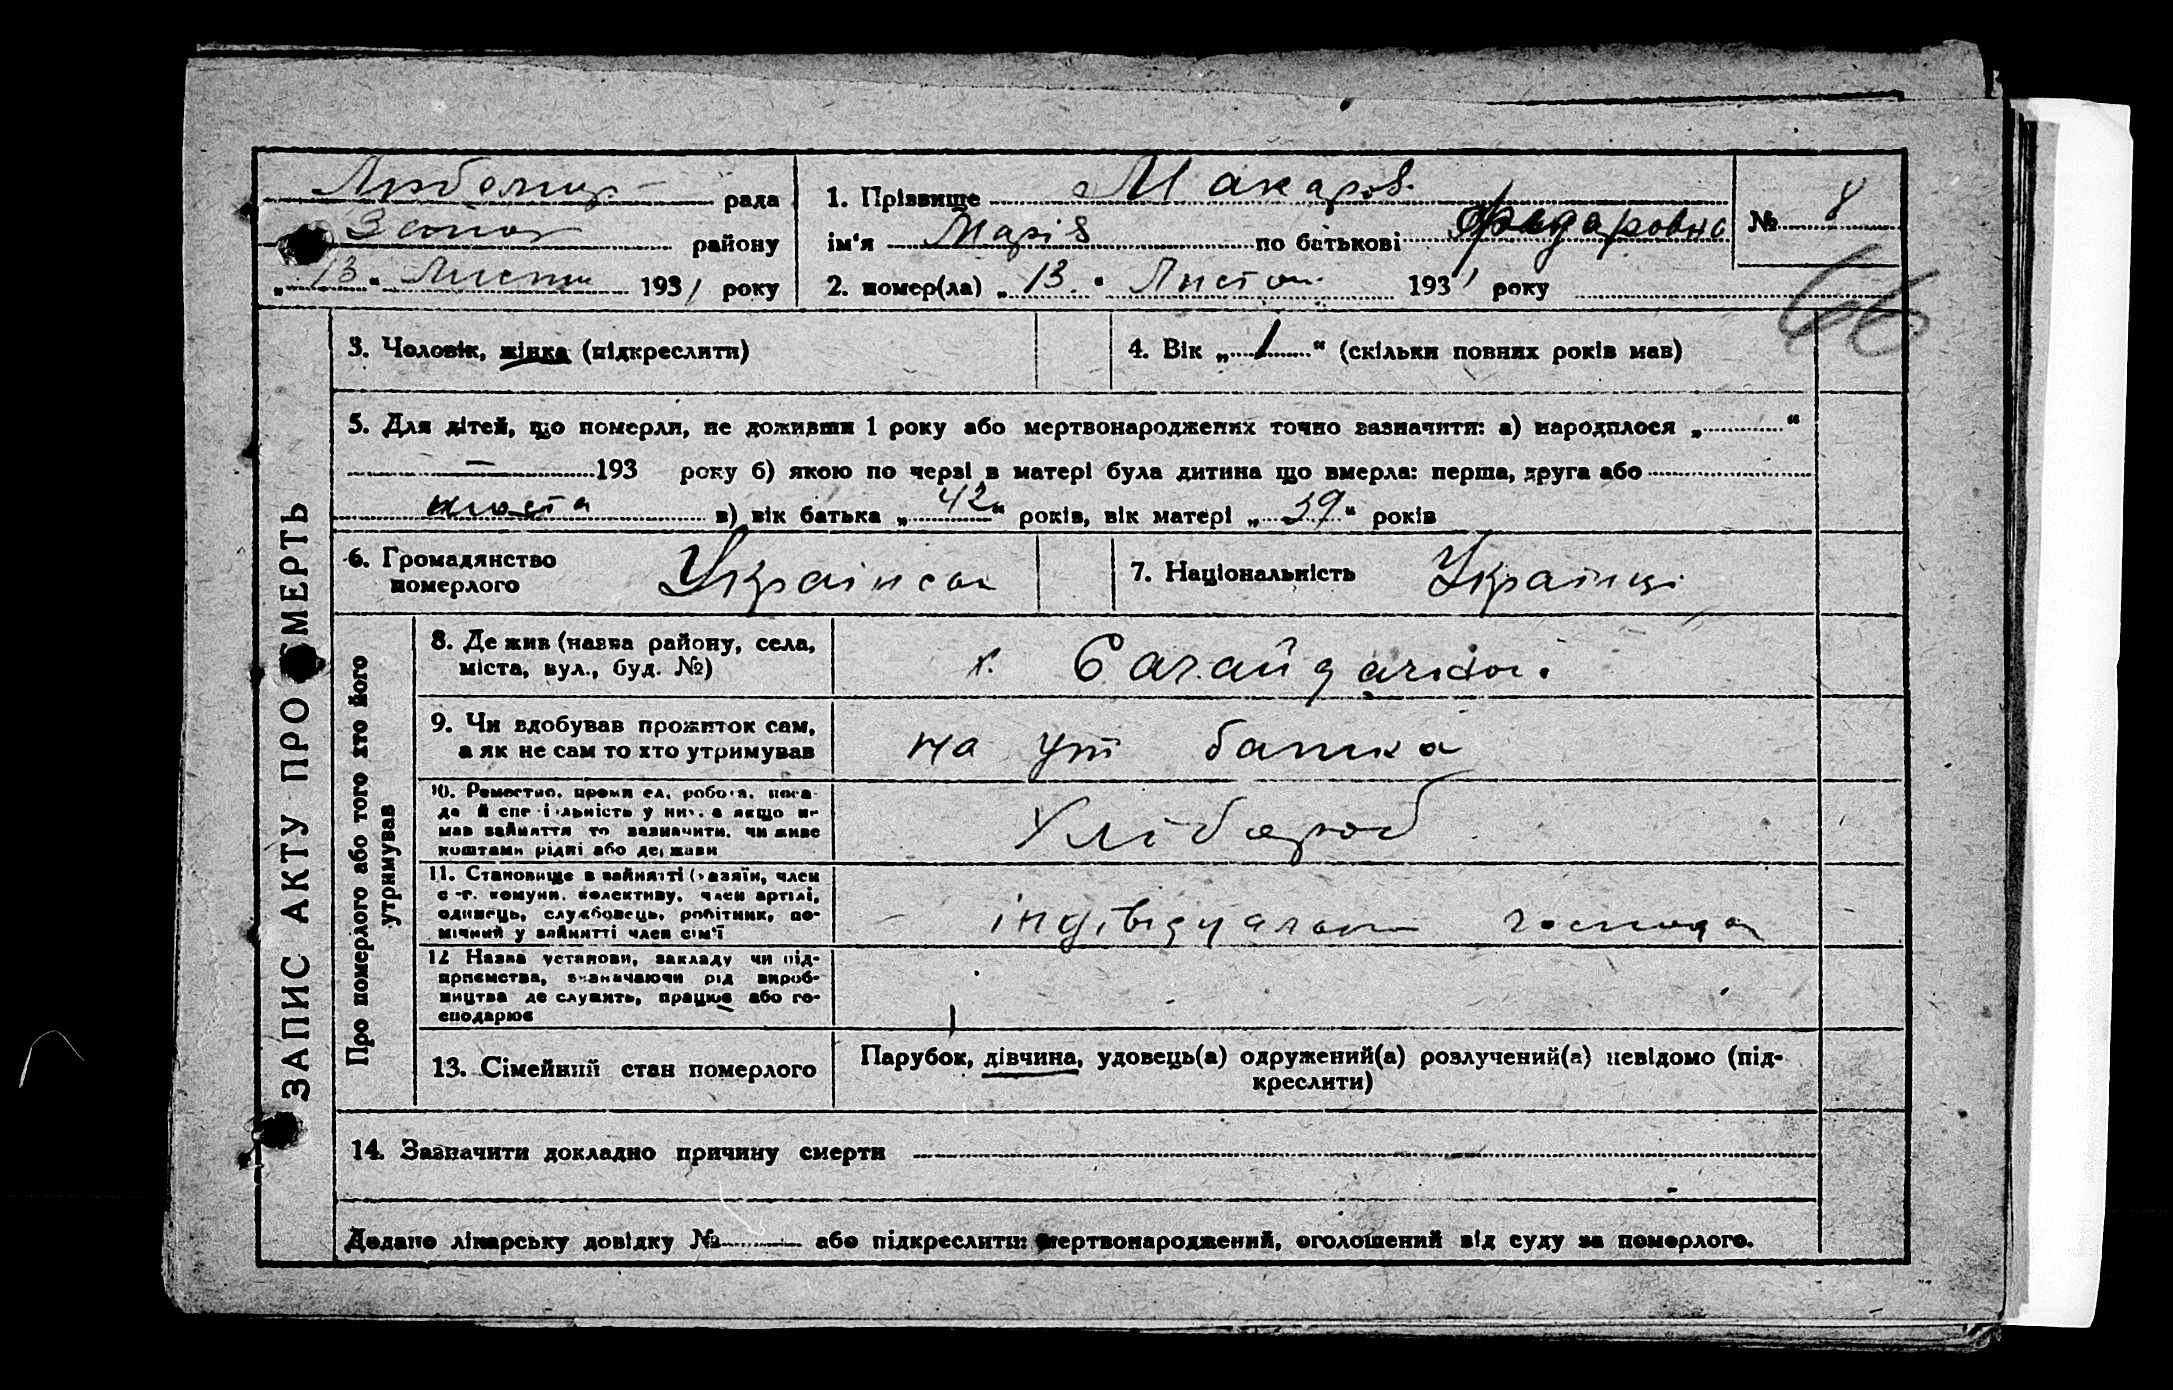 Любомир рада
району
„13“ Листп 1931 року
1. Прізвище Макаров.
ім'я Марія по батькові Федаровна
2. помер(ла) „13“ Листоп. 1931 року
№ 8
66
ЗАПИС АКТУ ПРО СМЕРТЬ
3. Чоловік, жінка (підкреслити)
4. Вік „1“ (скільки повних років мав)
5. Для дітей, що померли, не доживши 1 року або мертвонароджених точно зазначити: а) народилося „ “
— 193 року б) якою по черзі в матері була дитина що вмерла: перша, друга або
шоста в) вік батька „42“ років, вік матері „39“ років
6. Громадянство
померлого
Українськ
7. Національність Українці
Про померлого або того хто його
утримував
8. Де жив (назва району, села,
міста, вул., буд. №)
х. Сагайдачной.
9. Чи здобував прожиток сам,
а як не сам то хто утримував
на ут батька
10. Ремество, промисел, робота, поса-
да й спеціяльність у них, а якщо не
мав зайняття то зазначити, чи живе
коштами рідні або держави
Хлібороб
11. Становище в зайнятті (хазяїн, член
с.-г. комуни, колективу, член артілі,
одинець, службовець, робітник, по-
мічний у зайнятті член сім'ї
індівідуальн господар
12 Назва установи, закладу чи під-
приємства, визначаючи рід вироб-
ництва де служить, працює або го-
сподарює
13. Сімейний стан померлого
Парубок, дівчина, удовець(а) одружений(а) розлучений(а) невідомо (під-
креслити)
14. Зазначити докладно причину смерти
Додано лікарську довідку № або підкреслити: мертвонароджений, оголошений від суду за померлого.